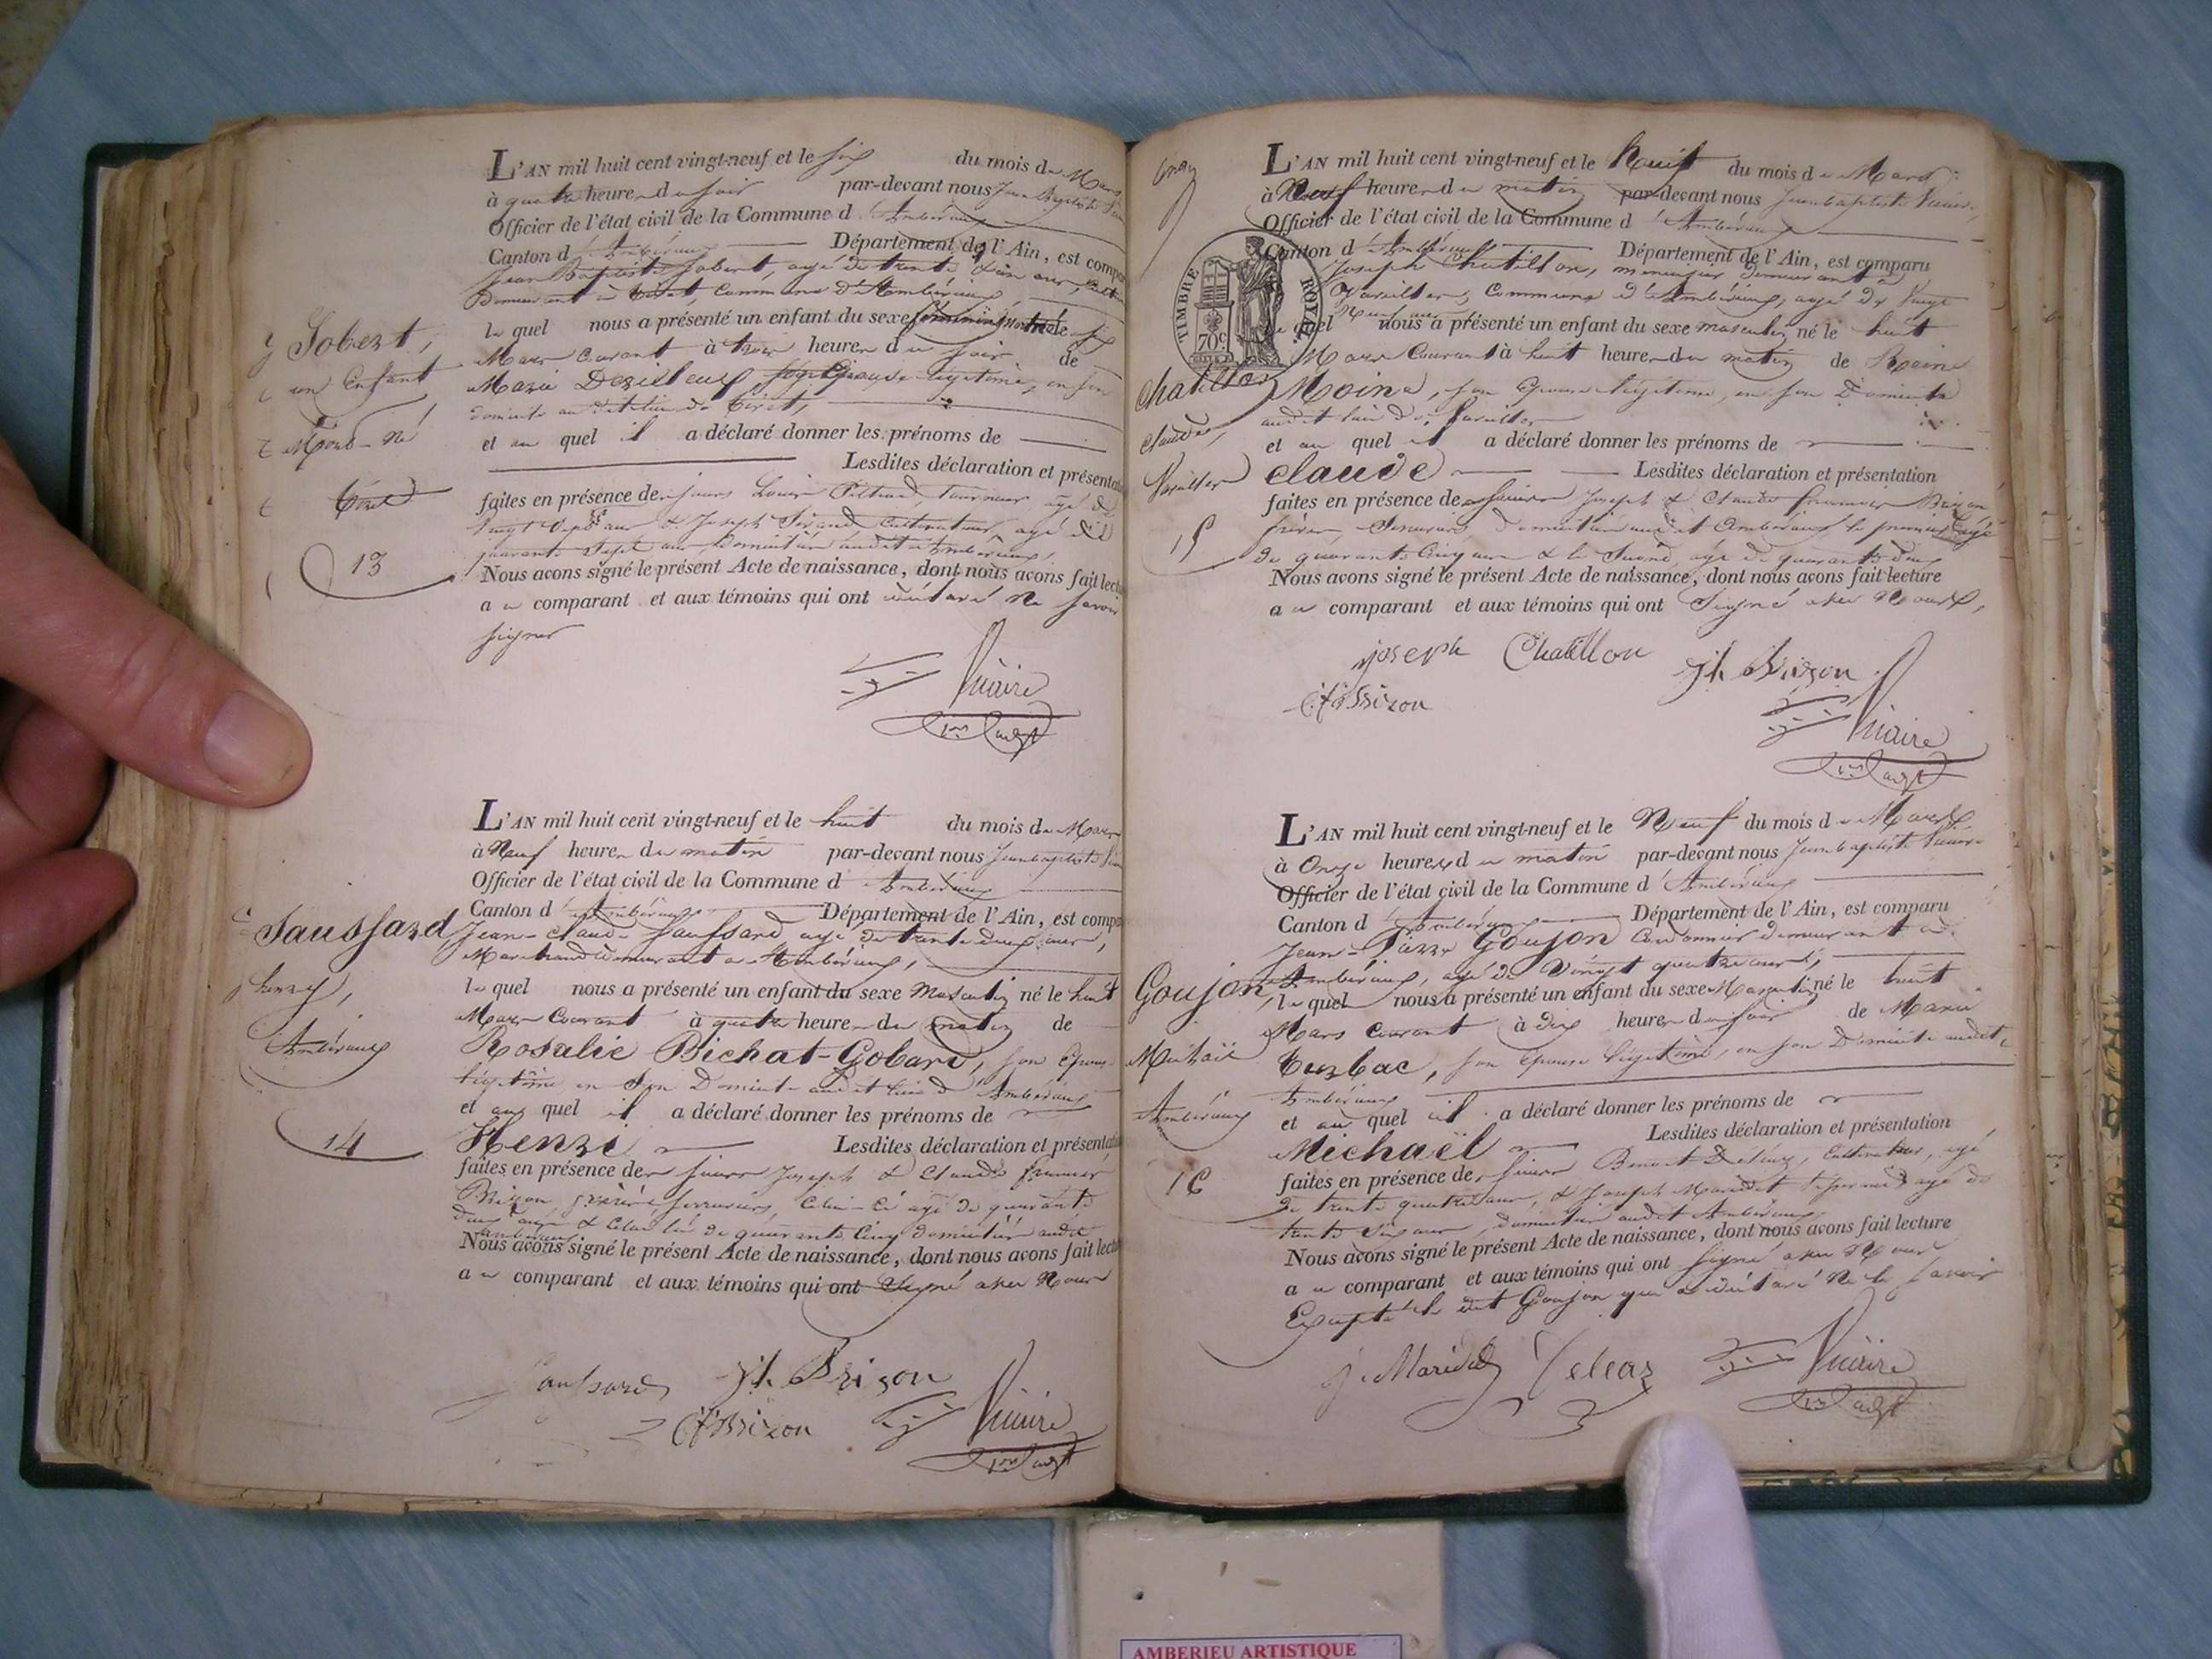 L'AN mil huit cent vingt-neuf et le six du mois de Mars
à quatre heures du soir par-devant nous Jean Baptiste
Officier de l'état civil de la Commune d'Ambérieux
Canton d'Ambérieux Département de l'Ain, est compa
Jean Baptiste Jobert, agé de trente
Demeurant à Tiret, Commune d'Ambérieux
Jobert,
le quel nous a présenté un enfant du sexe féminin Mort né le six
un Enfant
Mars Courant à trois heures du soir de
Marie son Epouse légitime, en son
domicile au dit lieu de Tiret,
Mort-Né
et au quel il a déclaré donner les prénoms de
Lesdites déclaration et présentati
Tiret
faites en présence des sieurs Louis tourneur agé de
Vingt Sept ans & Joseph Cultivateur, agé de
quarante Sept ans, Domiciliés audit Ambérieux,
13
Nous avons signé le présent Acte de naissance, dont nous avons fait lectu
au comparant et aux témoins qui ont déclaré Ne savoir
signer
Vicaire
L'AN mil huit cent vingt-neuf et le huit du mois de Mars
à Neuf heures du matin par-devant nous Jean baptiste
Officier de l'état civil de la Commune d'Ambérieux
Canton d'Ambérieux Département de l'Ain, est compa
Saussard
Jean-Claude Saussard agé de trente deux ans,
Marchand demeurant à Ambérieux,
le quel nous a présenté un enfant du sexe Masculin né le huit
henry,
Mars Courant à quatre heures du matin de
Ambérieux
Rosalie Bichat-Gobard, son Epouse
légitime en Son Domicile audit lieu d'Ambérieux
et au quel il a déclaré donner les prénoms de
14
Henri Lesdites déclaration et présentati
faites en présence des sieurs Joseph & Claude
Brizon frères serruriers, Celui-Ci agé de quarante
deux ans & Celui là de quarante Cinq domiciliés audit
Ambérieux
Nous avons signé le présent Acte de naissance, dont nous avons fait lectu
au comparant et aux témoins qui ont Signé avec Nous
Saussard Jh Brizon
Brizon Vicaire
L'AN mil huit cent vingt-neuf et le huit du mois de Mars
à Neuf heures du matin par-devant nous Jean baptiste Vicaire
Officier de l'état civil de la Commune d'Ambérieux
Canton d'Ambérieux Département de l'Ain, est comparu
TIMBRE ROYAL
70c
Joseph Chatillon, menuisier Demeurant à
Vareilles, Commune d'Ambérieux, agé de Vingt
le quel nous a présenté un enfant du sexe masculin, né le huit
Mars Courant à huit heures du matin de
Chatillon
Moine, son Epouse légitime, en son Domicile
audit lieu de Vareilles
Claude,
et au quel il a déclaré donner les prénoms de
Vareilles
claude Lesdites déclaration et présentation
faites en présence des sieurs Joseph & Claude Brizon
frères, Serruriers Domiciliés audit Ambérieux, le premier agé
15
de quarante Cinq ans & le Second, agé de quarante deux
Nous avons signé le présent Acte de naissance, dont nous avons fait lecture
au comparant et aux témoins qui ont Signé avec Nous,
joseph Chatillon Jh Brizon
Brizon
Vicaire
L'AN mil huit cent vingt-neuf et le Neuf du mois de Mars
à Onze heures du matin par-devant nous Jean baptiste Vicaire
Officier de l'état civil de la Commune d'Ambérieux
Canton d'Ambérieux Département de l'Ain, est comparu
Jean-Pierre Goujon Cordonnier demeurant à
Goujon
Ambérieux, agé de Vingt quatre ans,
le quel nous a présenté un enfant du sexe Masculin, né le huit
Mars Courant à dix heures du soir de Marie
Michaël
son Epouse légitime, en son Domicile audit
Ambérieux
Ambérieux
et au quel il a déclaré donner les prénoms de
Michaël Lesdites déclaration et présentation
16
faites en présence des sieurs Benoit Cultivateur, agé
de trente quatre ans, & Joseph Maridet agé de
trente Six ans, domiciliés audit Ambérieux
Nous avons signé le présent Acte de naissance, dont nous avons fait lecture
au comparant et aux témoins qui ont signé avec Nous
Excepté le dit Goujon qui a déclaré Ne le savoir
J. Maridet Vicaire
AMBERIEU ARTISTIQUE